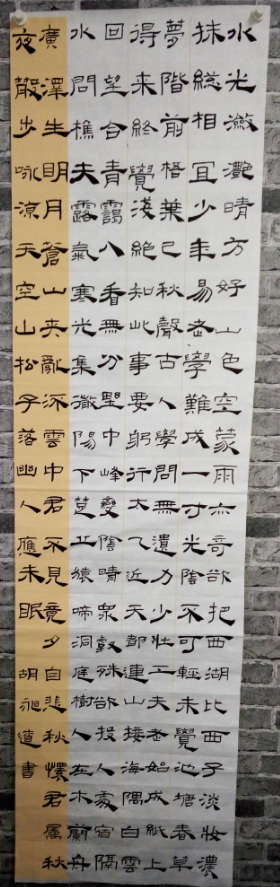 水光瀲灩晴方好山色空蒙雨亦奇欲把西湖比西子淡妝濃
抹總相宜少年易老學難成一寸光陰不可輕未覺池塘春草
夢階前梧葉已秋聲古人學問無遺力少壯工夫老始成紙上
得來終覺淺絕知此事要躬行太乙近天都連山接海隅白雲
回望合青靄入看無分野中峰變陰晴眾壑殊欲投人處宿隔
水問樵夫露氣寒光集微陽下楚丘猿啼洞庭樹人在木蘭舟
廣澤生明月蒼山夾亂流雲中君不見竟夕自悲秋懷君屬秋
夜散步詠涼天空山松子落幽人應未眠 胡書